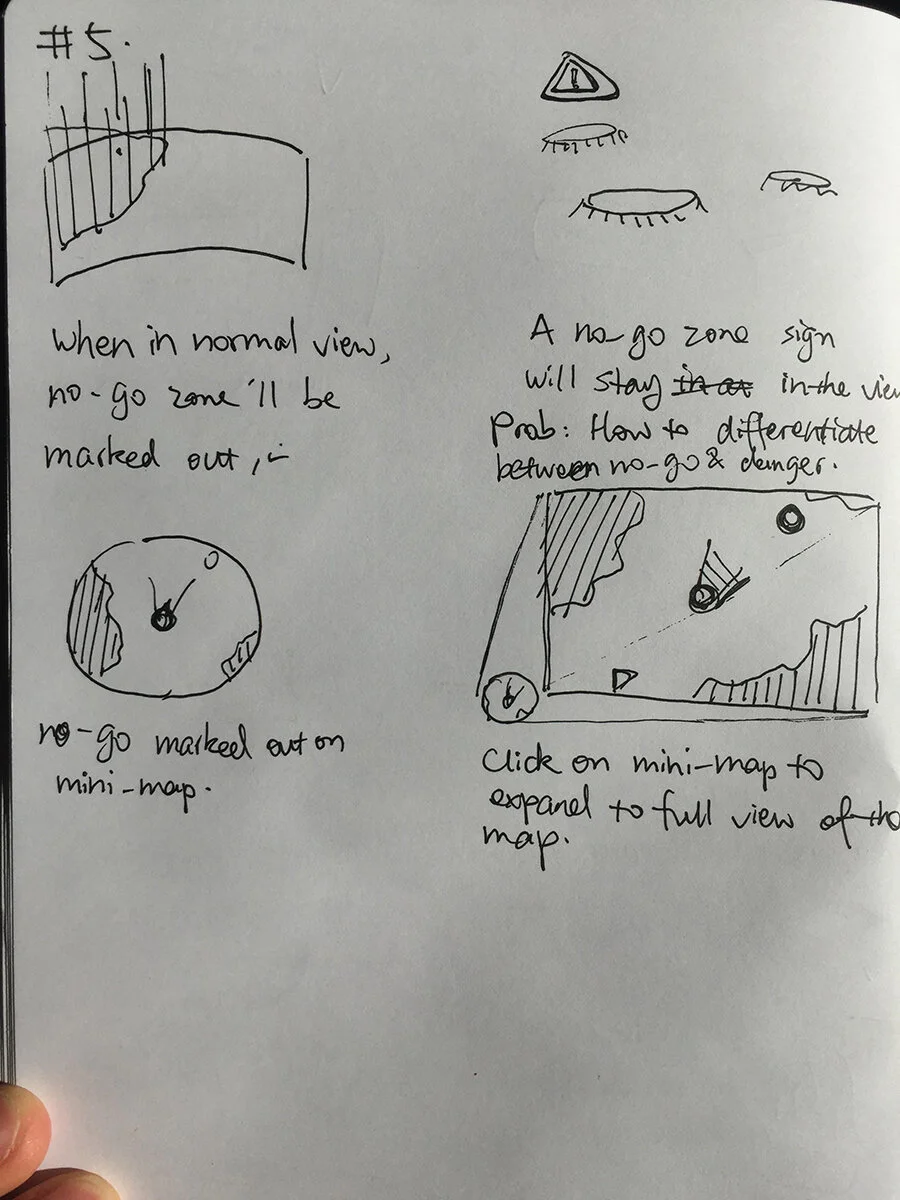 #5.
When in normal view,
no-go zone'll be
marked out,
!
A no-go zone sign
will stay in the view
Prob: How to differentiate
between no-go & danger.
no-go marked out on
mini-map.
Click on mini-map to
expand to full view of the
map.